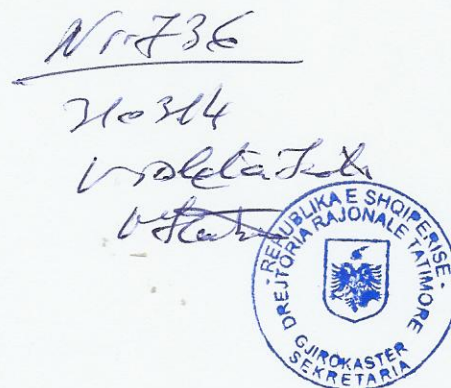 Nr-736
310314
Violeta
REPUBLIKA E SHQIPERISE
DREJTORIA RAJONALE TATIMORE
GJIROKASTER
SEKRETARIA